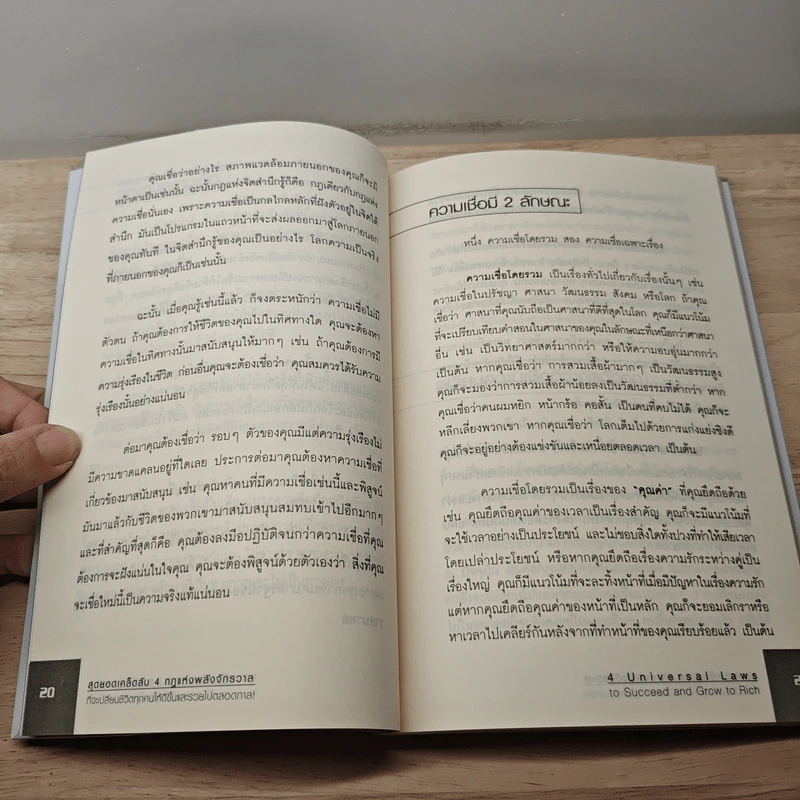 คุณเชื่อว่าอย่างไร สภาพแวดล้อมภายนอกของคุณก็จะมี
หน้าตาเป็นเช่นนั้น ฉะนั้นกฎแห่งจิตสำนึกรู้ก็คือ กฎเดียวกับกฎแห่ง
ความเชื่อนั่นเอง เพราะความเชื่อเป็นกลไกลหลักที่ฝังตัวอยู่ในจิตใต้
สำนึก มันเป็นโปรแกรมในแถวหน้าที่จะส่งผลออกมาสู่โลกภายนอก
ของคุณทันที ในจิตสำนึกรู้ของคุณเป็นอย่างไร โลกความเป็นจริง
ที่ภายนอกของคุณก็เป็นเช่นนั้น
ฉะนั้น เมื่อคุณรู้เช่นนี้แล้ว ก็จงตระหนักว่า ความเชื่อไม่มี
ตัวตน ถ้าคุณต้องการให้ชีวิตของคุณไปในทิศทางใด คุณจะต้องหา
ความเชื่อในทิศทางนั้นมาสนับสนุนให้มากๆ เช่น ถ้าคุณต้องการมี
ความรุ่งเรืองในชีวิต ก่อนอื่นคุณจะต้องเชื่อว่า คุณสมควรได้รับความ
รุ่งเรืองนั้นอย่างแน่นอน
ต่อมาคุณต้องเชื่อว่า รอบๆ ตัวของคุณมีแต่ความรุ่งเรืองไม่
มีความขาดแคลนอยู่ที่ใดเลย ประการต่อมาคุณต้องหาความเชื่อที่
เกี่ยวข้องมาสนับสนุน เช่น คุณหาคนที่มีความเชื่อเช่นนี้และพิสูจน์
มันมาแล้วกับชีวิตของพวกเขามาสนับสนุนสมทบเข้าไปอีกมากๆ
และที่สำคัญที่สุดก็คือ คุณต้องลงมือปฏิบัติจนกว่าความเชื่อที่คุณ
ต้องการจะฝังแน่นในใจคุณ คุณจะต้องพิสูจน์ด้วยตัวเองว่า สิ่งที่คุณ
จะเชื่อใหม่นี้เป็นความจริงแท้แน่นอน
20
สุดยอดเคล็ดลับ 4 กฎแห่งพลังจักรวาล
ที่จะเปลี่ยนชีวิตทุกคนให้ดีขึ้นและรวยไปตลอดกาล!
ความเชื่อมี 2 ลักษณะ
หนึ่ง ความเชื่อโดยรวม สอง ความเชื่อเฉพาะเรื่อง
ความเชื่อโดยรวม เป็นเรื่องทั่วไปเกี่ยวกับเรื่องนั้นๆ เช่น
ความเชื่อในปรัชญา ศาสนา วัฒนธรรม สังคม หรือโลก ถ้าคุณ
เชื่อว่า ศาสนาที่คุณนับถือเป็นศาสนาที่ดีที่สุดในโลก คุณก็มีแนวโน้ม
ที่จะเปรียบเทียบคำสอนในศาสนาของคุณในลักษณะที่เหนือกว่าศาสนา
อื่น เช่น เป็นวิทยาศาสตร์มากกว่า หรือให้ความอบอุ่นมากกว่า
เป็นต้น หากคุณเชื่อว่า การสวมเสื้อผ้ามากๆ เป็นวัฒนธรรมสูง
คุณก็จะมองว่าการสวมเสื้อผ้าน้อยลงเป็นวัฒนธรรมที่ต่ำกว่า หาก
คุณเชื่อว่าคนผมหยิก หน้ากร้อ คอสั้น เป็นคนที่คบไม่ได้ คุณก็จะ
หลีกเลี่ยงพวกเขา หากคุณเชื่อว่า โลกเต็มไปด้วยการแก่งแย่งชิงดี
คุณก็จะอยู่อย่างต้องแข่งขันและเหนื่อยตลอดเวลา เป็นต้น
ความเชื่อโดยรวมเป็นเรื่องของ "คุณค่า" ที่คุณยึดถือด้วย
เช่น คุณยึดถือคุณค่าของเวลาเป็นเรื่องสำคัญ คุณก็จะมีแนวโน้มที่
จะใช้เวลาอย่างเป็นประโยชน์ และไม่ชอบสิ่งใดทั้งปวงที่ทำให้เสียเวลา
โดยเปล่าประโยชน์ หรือหากคุณยึดถือเรื่องความรักระหว่างคู่เป็น
เรื่องใหญ่ คุณก็มีแนวโน้มที่จะละทิ้งหน้าที่เมื่อมีปัญหาในเรื่องความรัก
แต่หากคุณยึดถือคุณค่าของหน้าที่เป็นหลัก คุณก็จะยอมเลิกราหรือ
หาเวลาไปเคลียร์กันหลังจากที่ทำหน้าที่ของคุณเรียบร้อยแล้ว เป็นต้น
4 Universal Laws
to Succeed and Grow to Rich